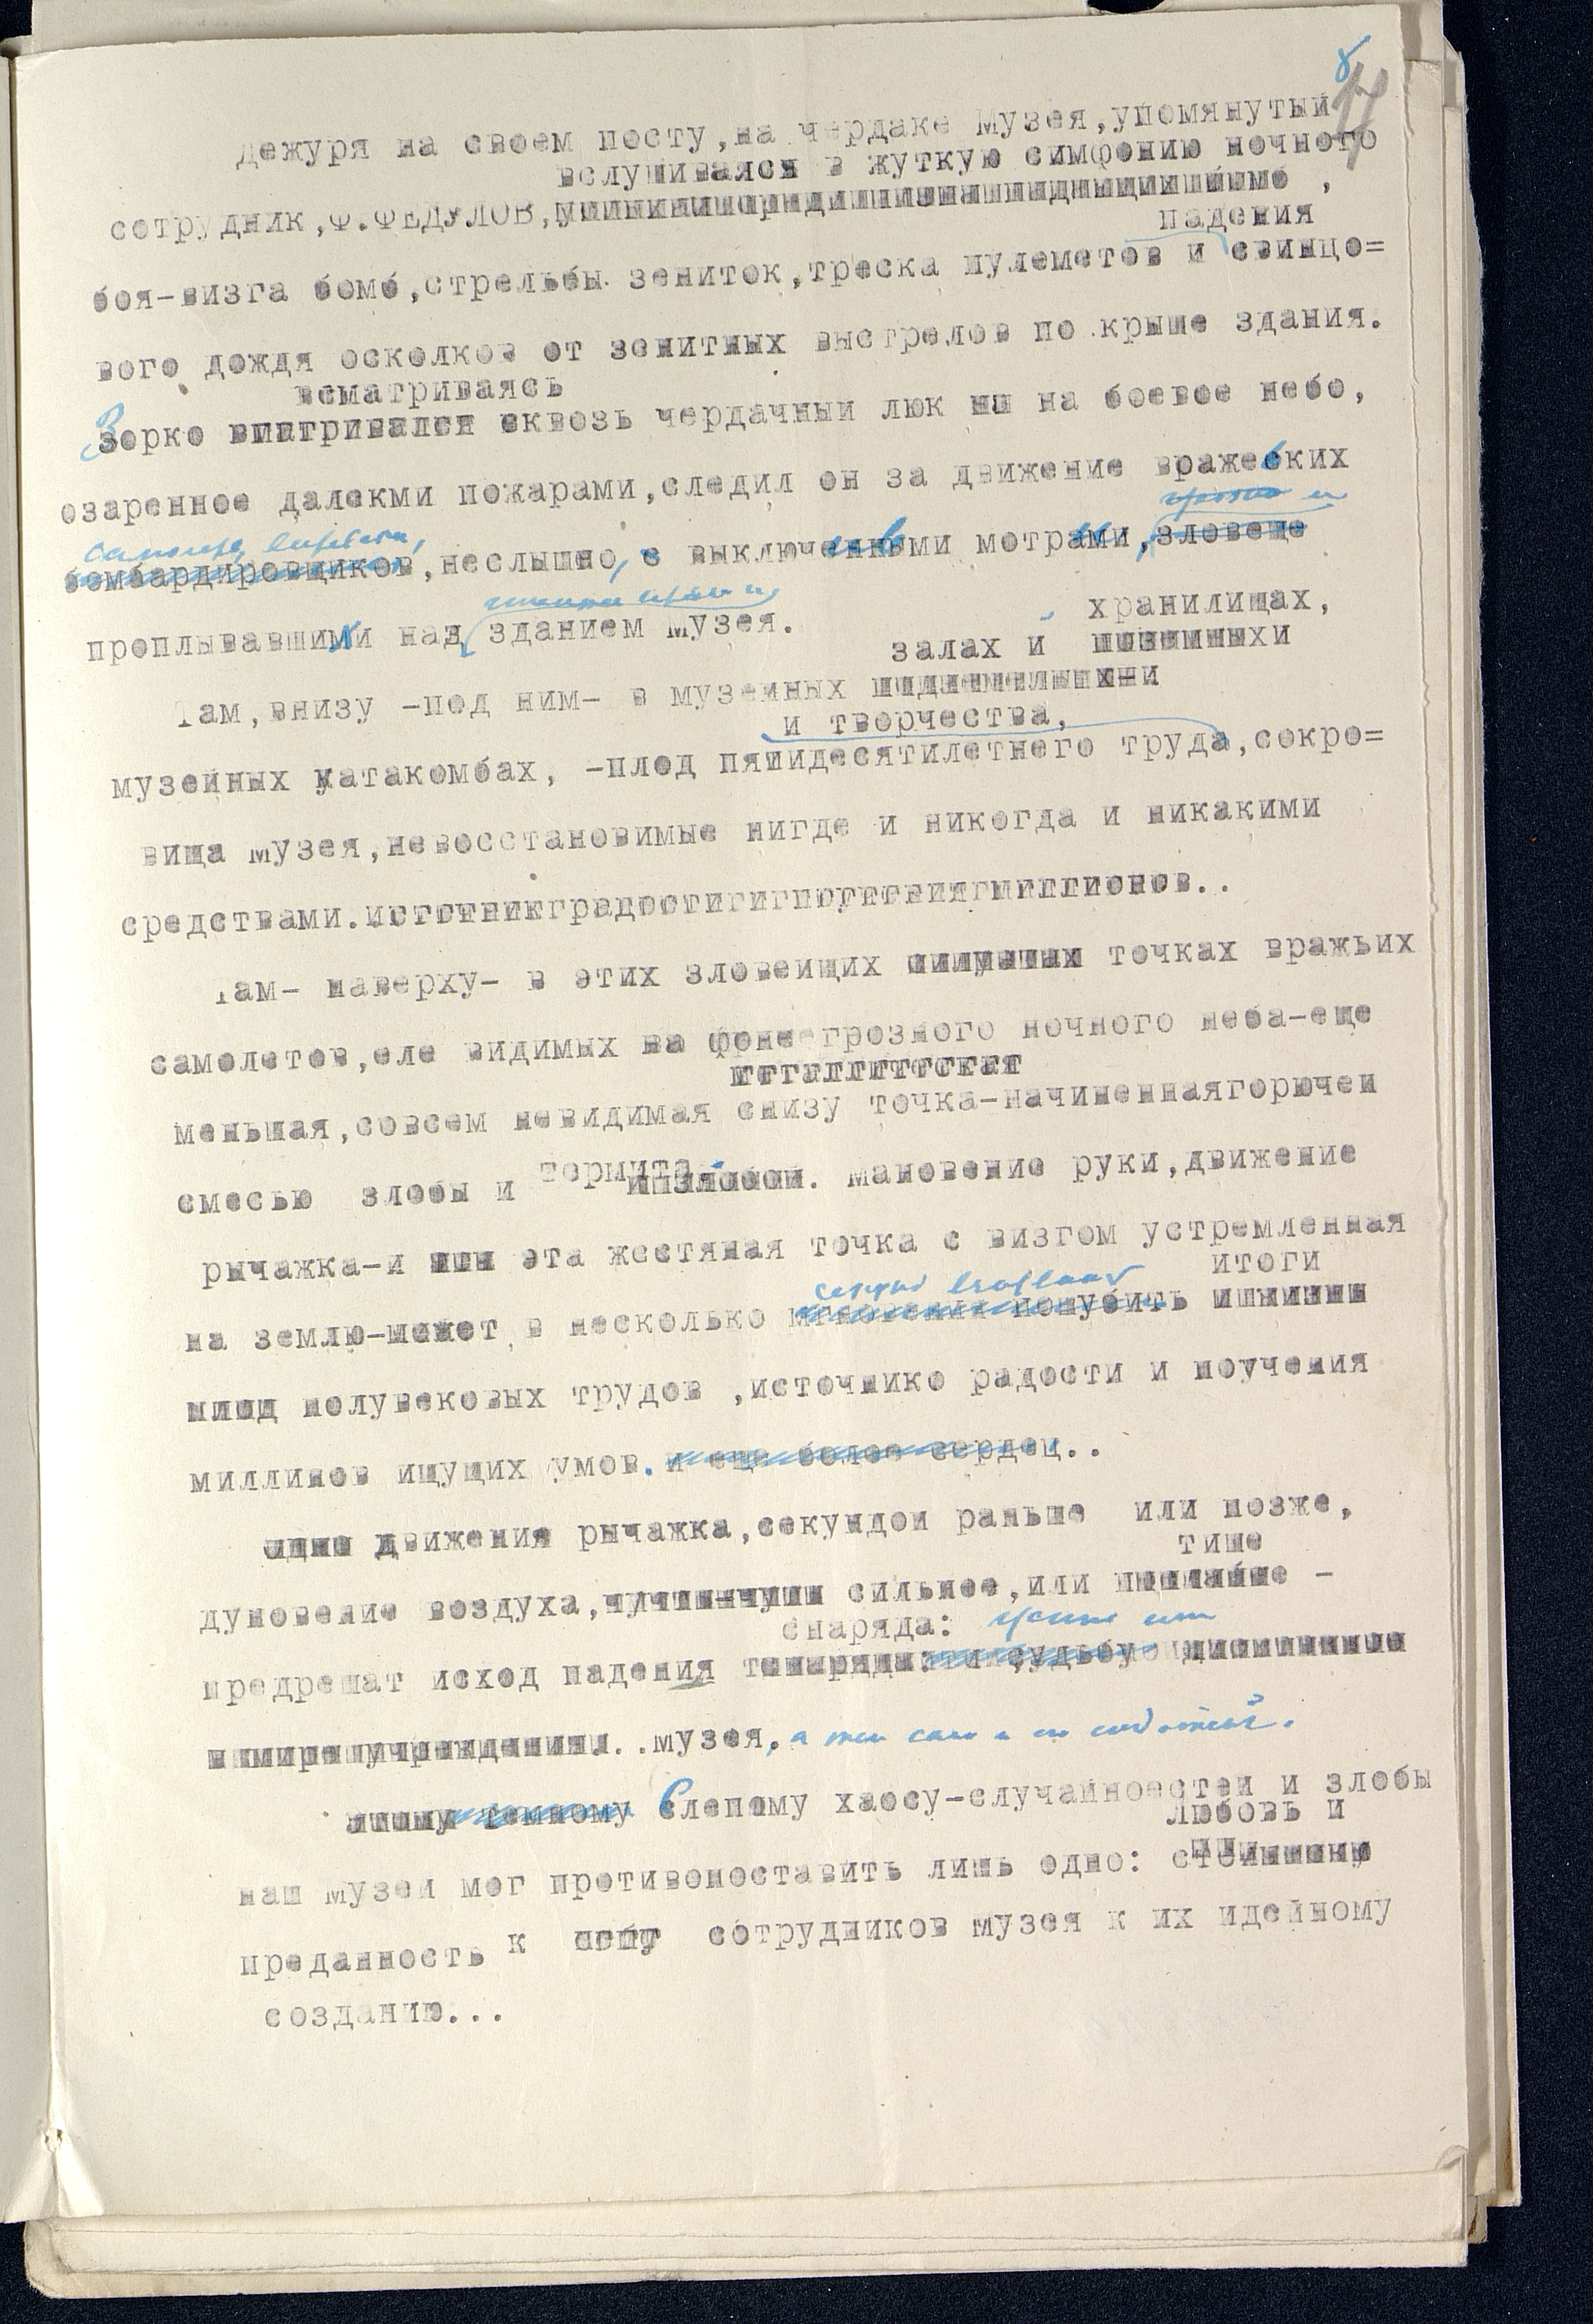 8
17
Дежуря на своем посту,на чердаке Музея,упомянутый
вслушиваяся в жуткую симфонию ночного
сотрудник,Ф.ФЕДУЛОВ, ,
падения
боя-визга бомб,стрельбы зениток,треска пулеметов и свинцо=
вого дождя осколков от зенитных выстрелов по крыше здания.
всматриваясь
Зорко сквозь чердачный люк на боевое небо,
озаренное далекми пожарами,следил он за движение вражеских
бомбардировщиков,неслышно, с выключенными мотрами,зловеще
проплывавшими над зданием Музея.
хранилищах,
залах и
Там,внизу -под ним- в музейных
и творчества,
музейных катакомбах, -плод пятидесятилетнего труда,сокро=
вища Музея,невосстановимые нигде и никогда и никакими
средствами.
Там- наверху- в этих зловеищих точках вражьих
самолетов,еле видимых на фоне грозного ночного неба-еще
меньшая,совсем невидимая снизу точка-начиненнаягорючей
термита
смесью злобы и . Мановение руки,движение
рычажка-и эта жестяная точка с визгом устремленная
итоги
на землю-может в несколько мгновений погубить
полувековых трудов ,источнико радости и поучения
миллинов ищущих умов. и еще более сердец..
движения рычажка,секундой раньше или позже,
тише
дуновение воздуха, сильнее,или -
снаряда:
предрешат исход падения судьбу
..музея, а тем самым и его
темному Слепому хаосу-случайноестей и злобы
любовь и
наш музей мог противопоставить лишь одно:
преданность к сотрудников музея к их идейному
созданию...